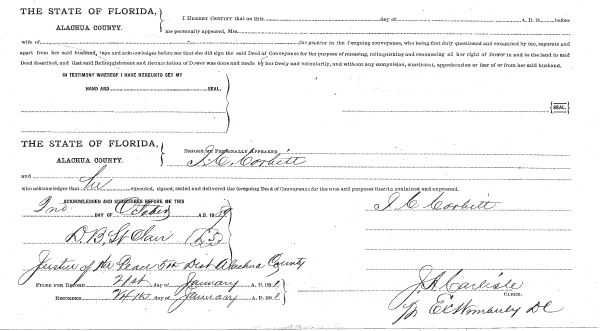 THE STATE OF FLORIDA,
ALACHUA COUNTY.
I HEREBY CERTIFY that on this day of A. D. 18 before
me personally appeared, Mrs
wife of the grantor in the foregoing conveyance, who being first duly questioned and examined by me, separate and
apart from her said husband, says and acknowledges before me that she did sign the said Deed of Conveyance for the purpose of releasing, relinquishing and renouncing all her right of Dower in and to the land in said
Deed described, and that said Relinquishment and Renunciation of Dower was done and made by her freely and voluntarily, and without any compulsion, constraint, apprehension or fear of or from her said husband.
IN TESTIMONY WHEREOF I HAVE HEREUNTO SET MY
HAND AND SEAL.
SEAL.
THE STATE OF FLORIDA,
ALACHUA COUNTY.
BEFORE ME PERSONALLY APPEARED
J. C. Corbett
and
who acknowledge that he executed, signed, sealed and delivered the foregoing Deed of Conveyance for the uses and purposes therein contained and expressed.
ACKNOWLEDGED AND SUBSCRIBED BEFORE ME THIS
2nd DAY OF October A. D. 18
J C Corbett
D. B. St Clair
Justice of the Peace 5th Dist Alachua County
FILED FOR RECORD 21st day of January A. D. 18
RECORDED day of January A. D. 18
J. A. Carlisle
CLERK.
DC